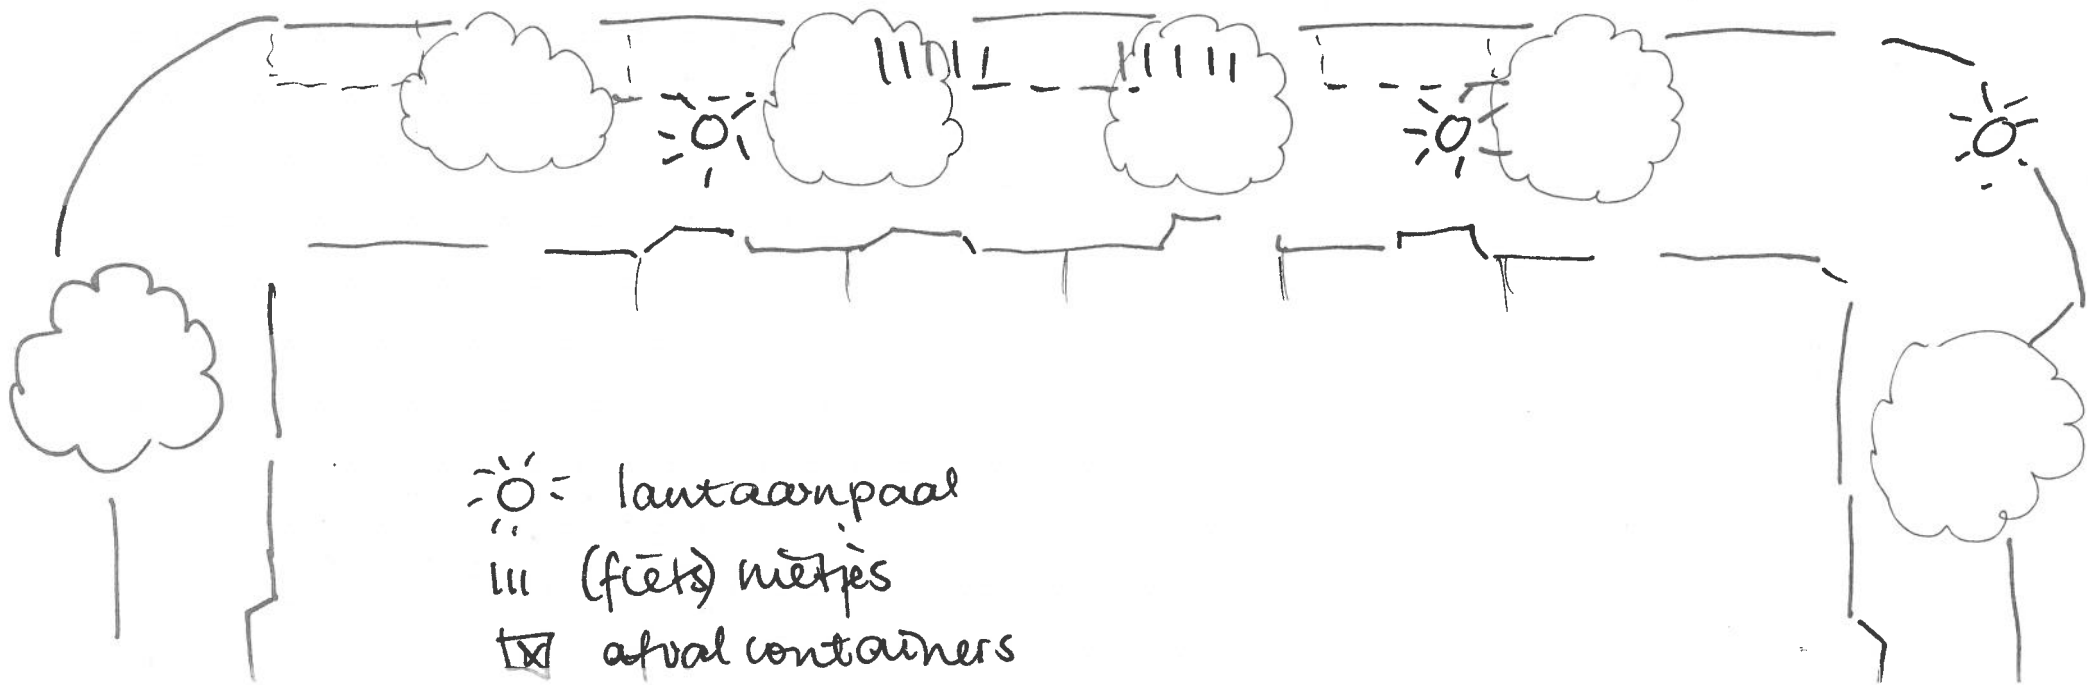 lantaarnpaal
(fiets) nietjes
afvalcontainers